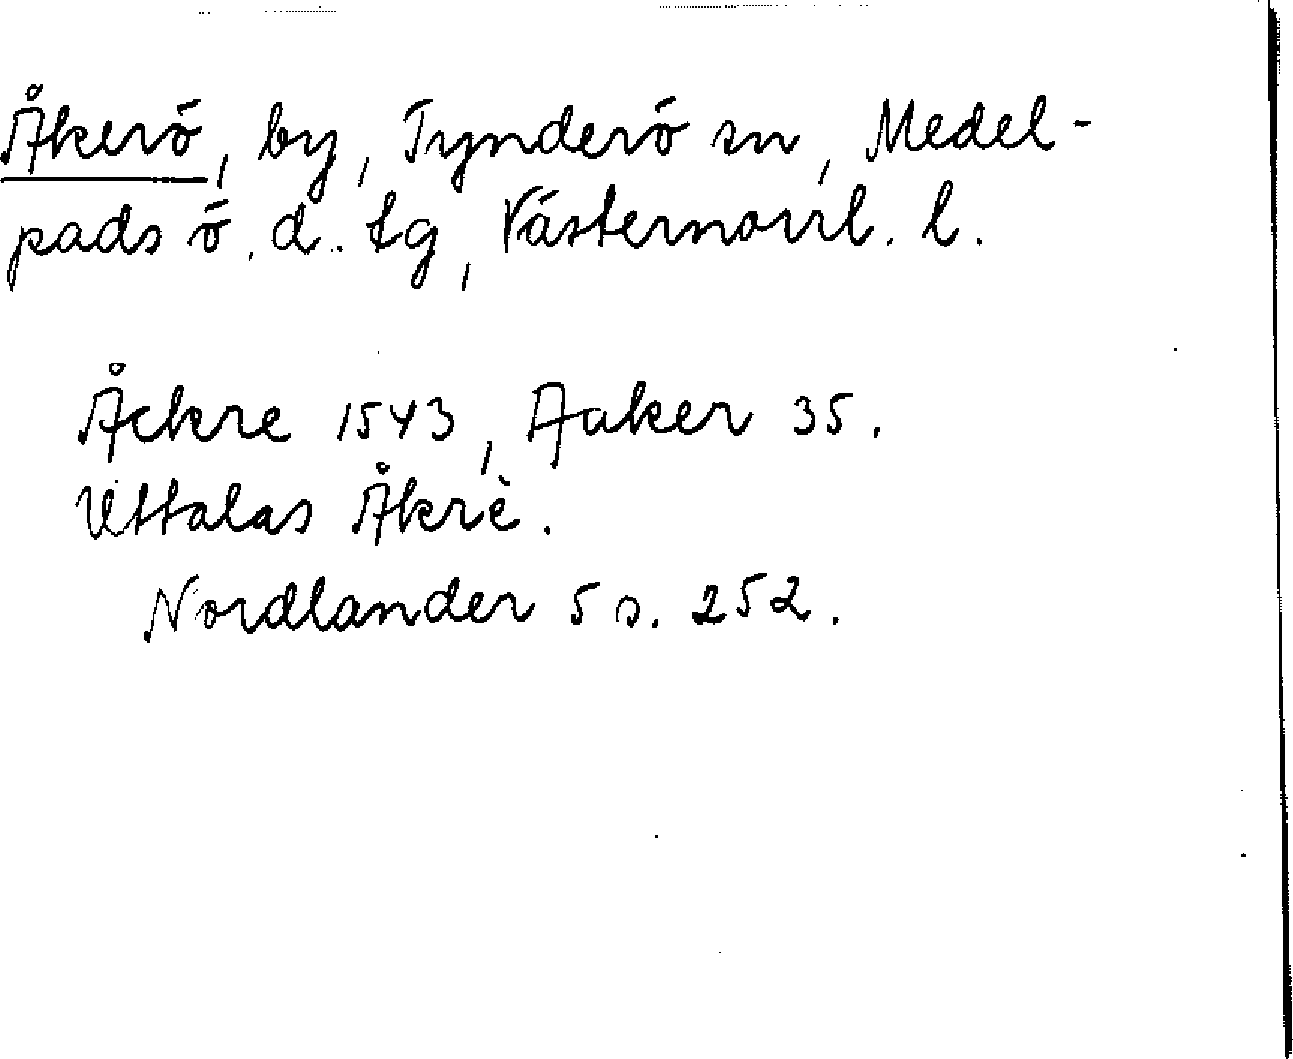 Åkerö, by, Tynderö sn, Medel-
pads ö. d. tg, Västernorrl. l.
Åckre 1543, Aaker 35.
Uttalas Åkrè.
Nordlander 5 s. 252.